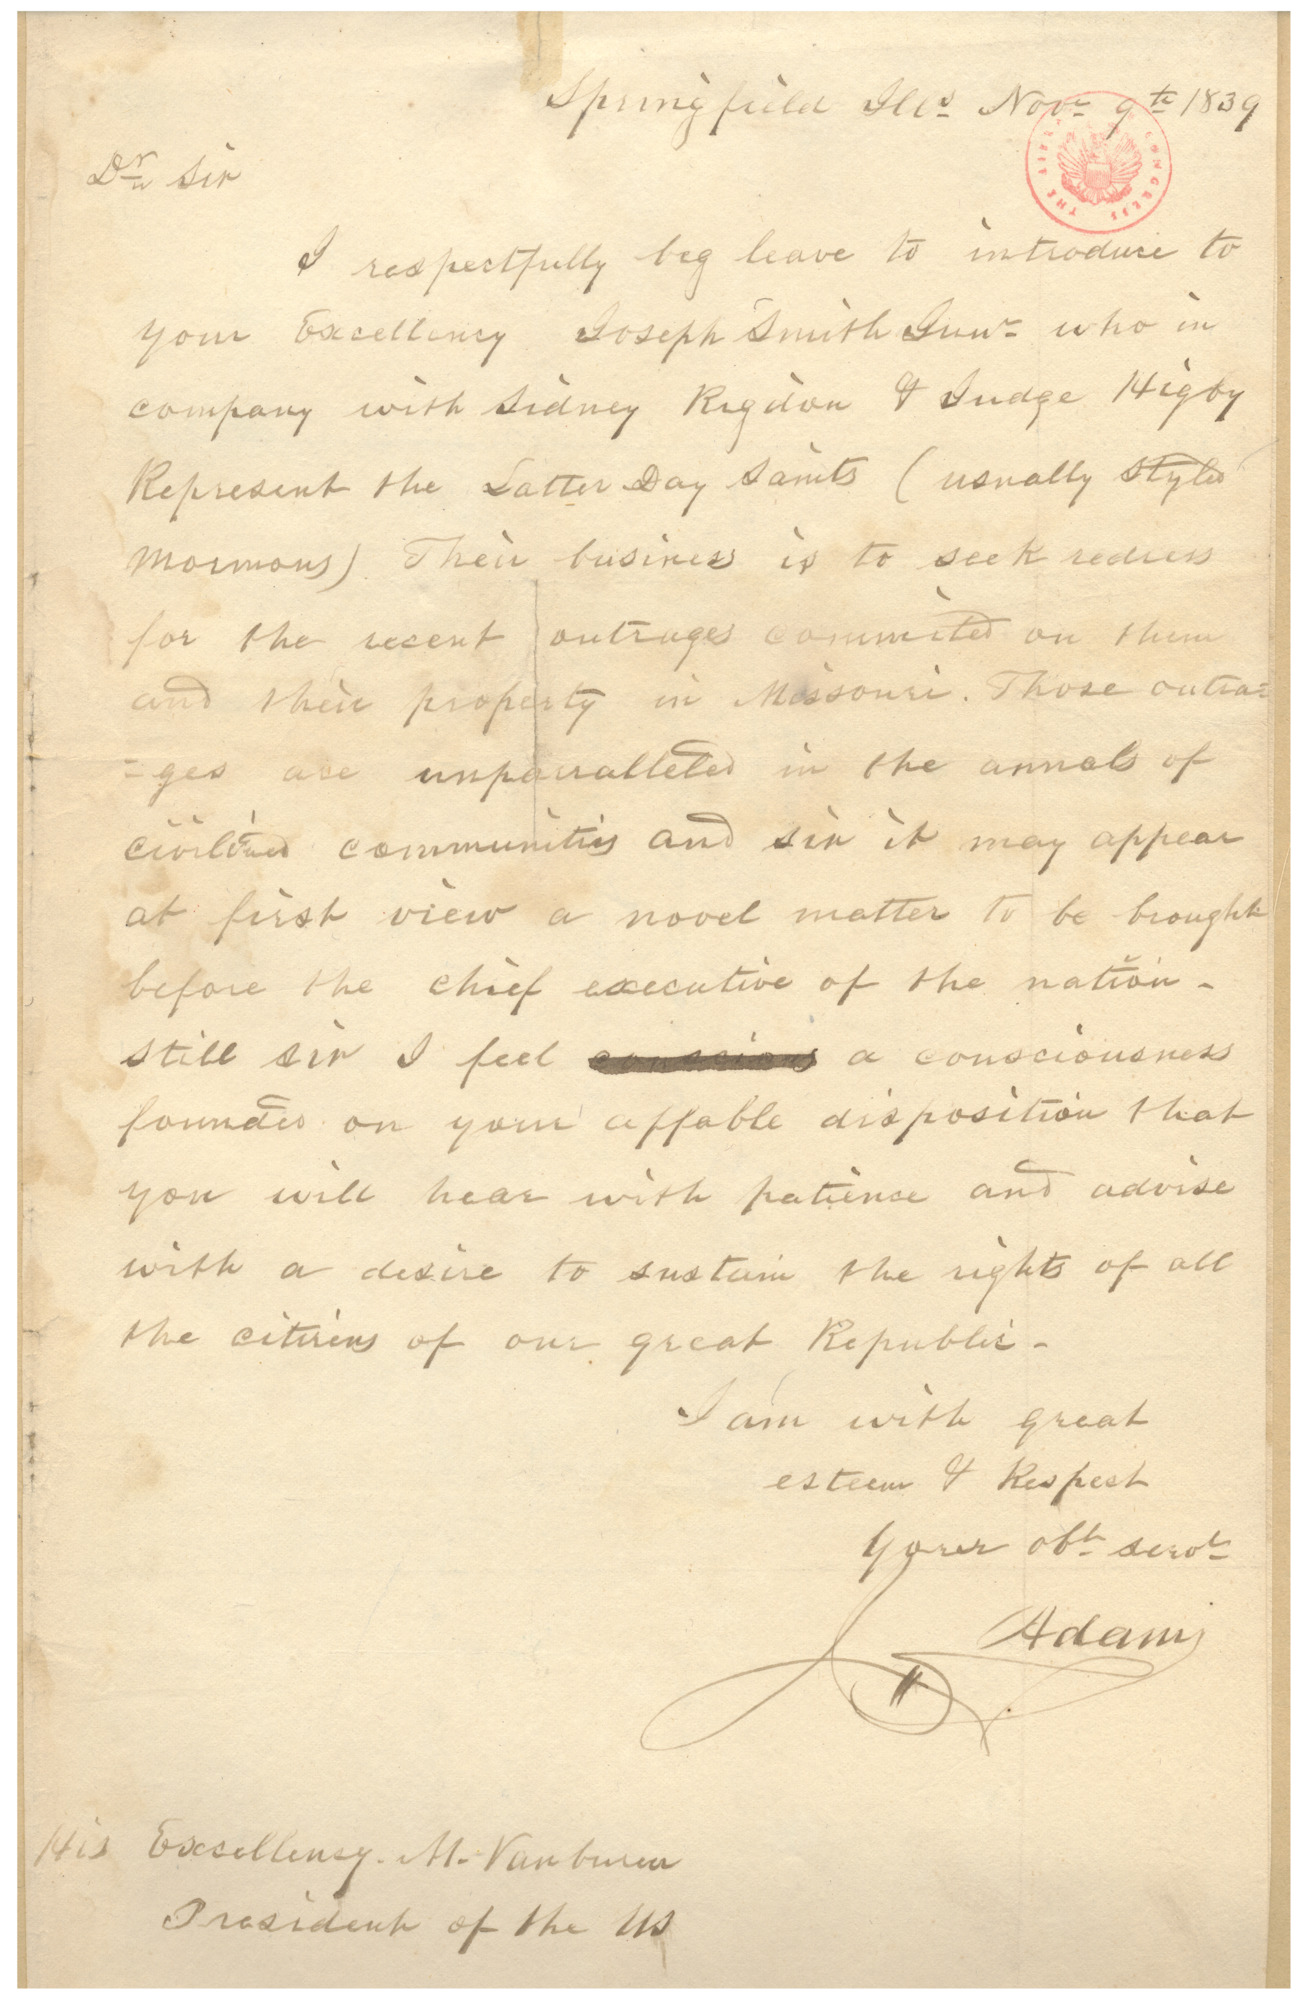 Springfield Ills Novr 9th 1839
THE LIBRARY CONGRESS
Dr Sir
I respectfully beg leave to introduce to
your Excellency Joseph Smith Junr who in
company with Sidney Rigdon & Judge Higby
Represent the Latter Day Saints (usually styled
Mormons). Their business is to seek redress
for the recent outrages commited on them
and their property in Missouri. Those outra=
=ges are unparralleled in the annals of
civilized communities and sir it may appear
at first view a novel matter to be brought
before the chief executive of the nation -
still sir I feel conscious a consciousness
founded on your affable disposition that
you will hear with patience and advise
with a desire to sustain the rights of all
the citizens of our great Republic -
I am with great
esteem & Respect
Your obt servt
J Adams
His Excellency M. Vanburen
President of the US